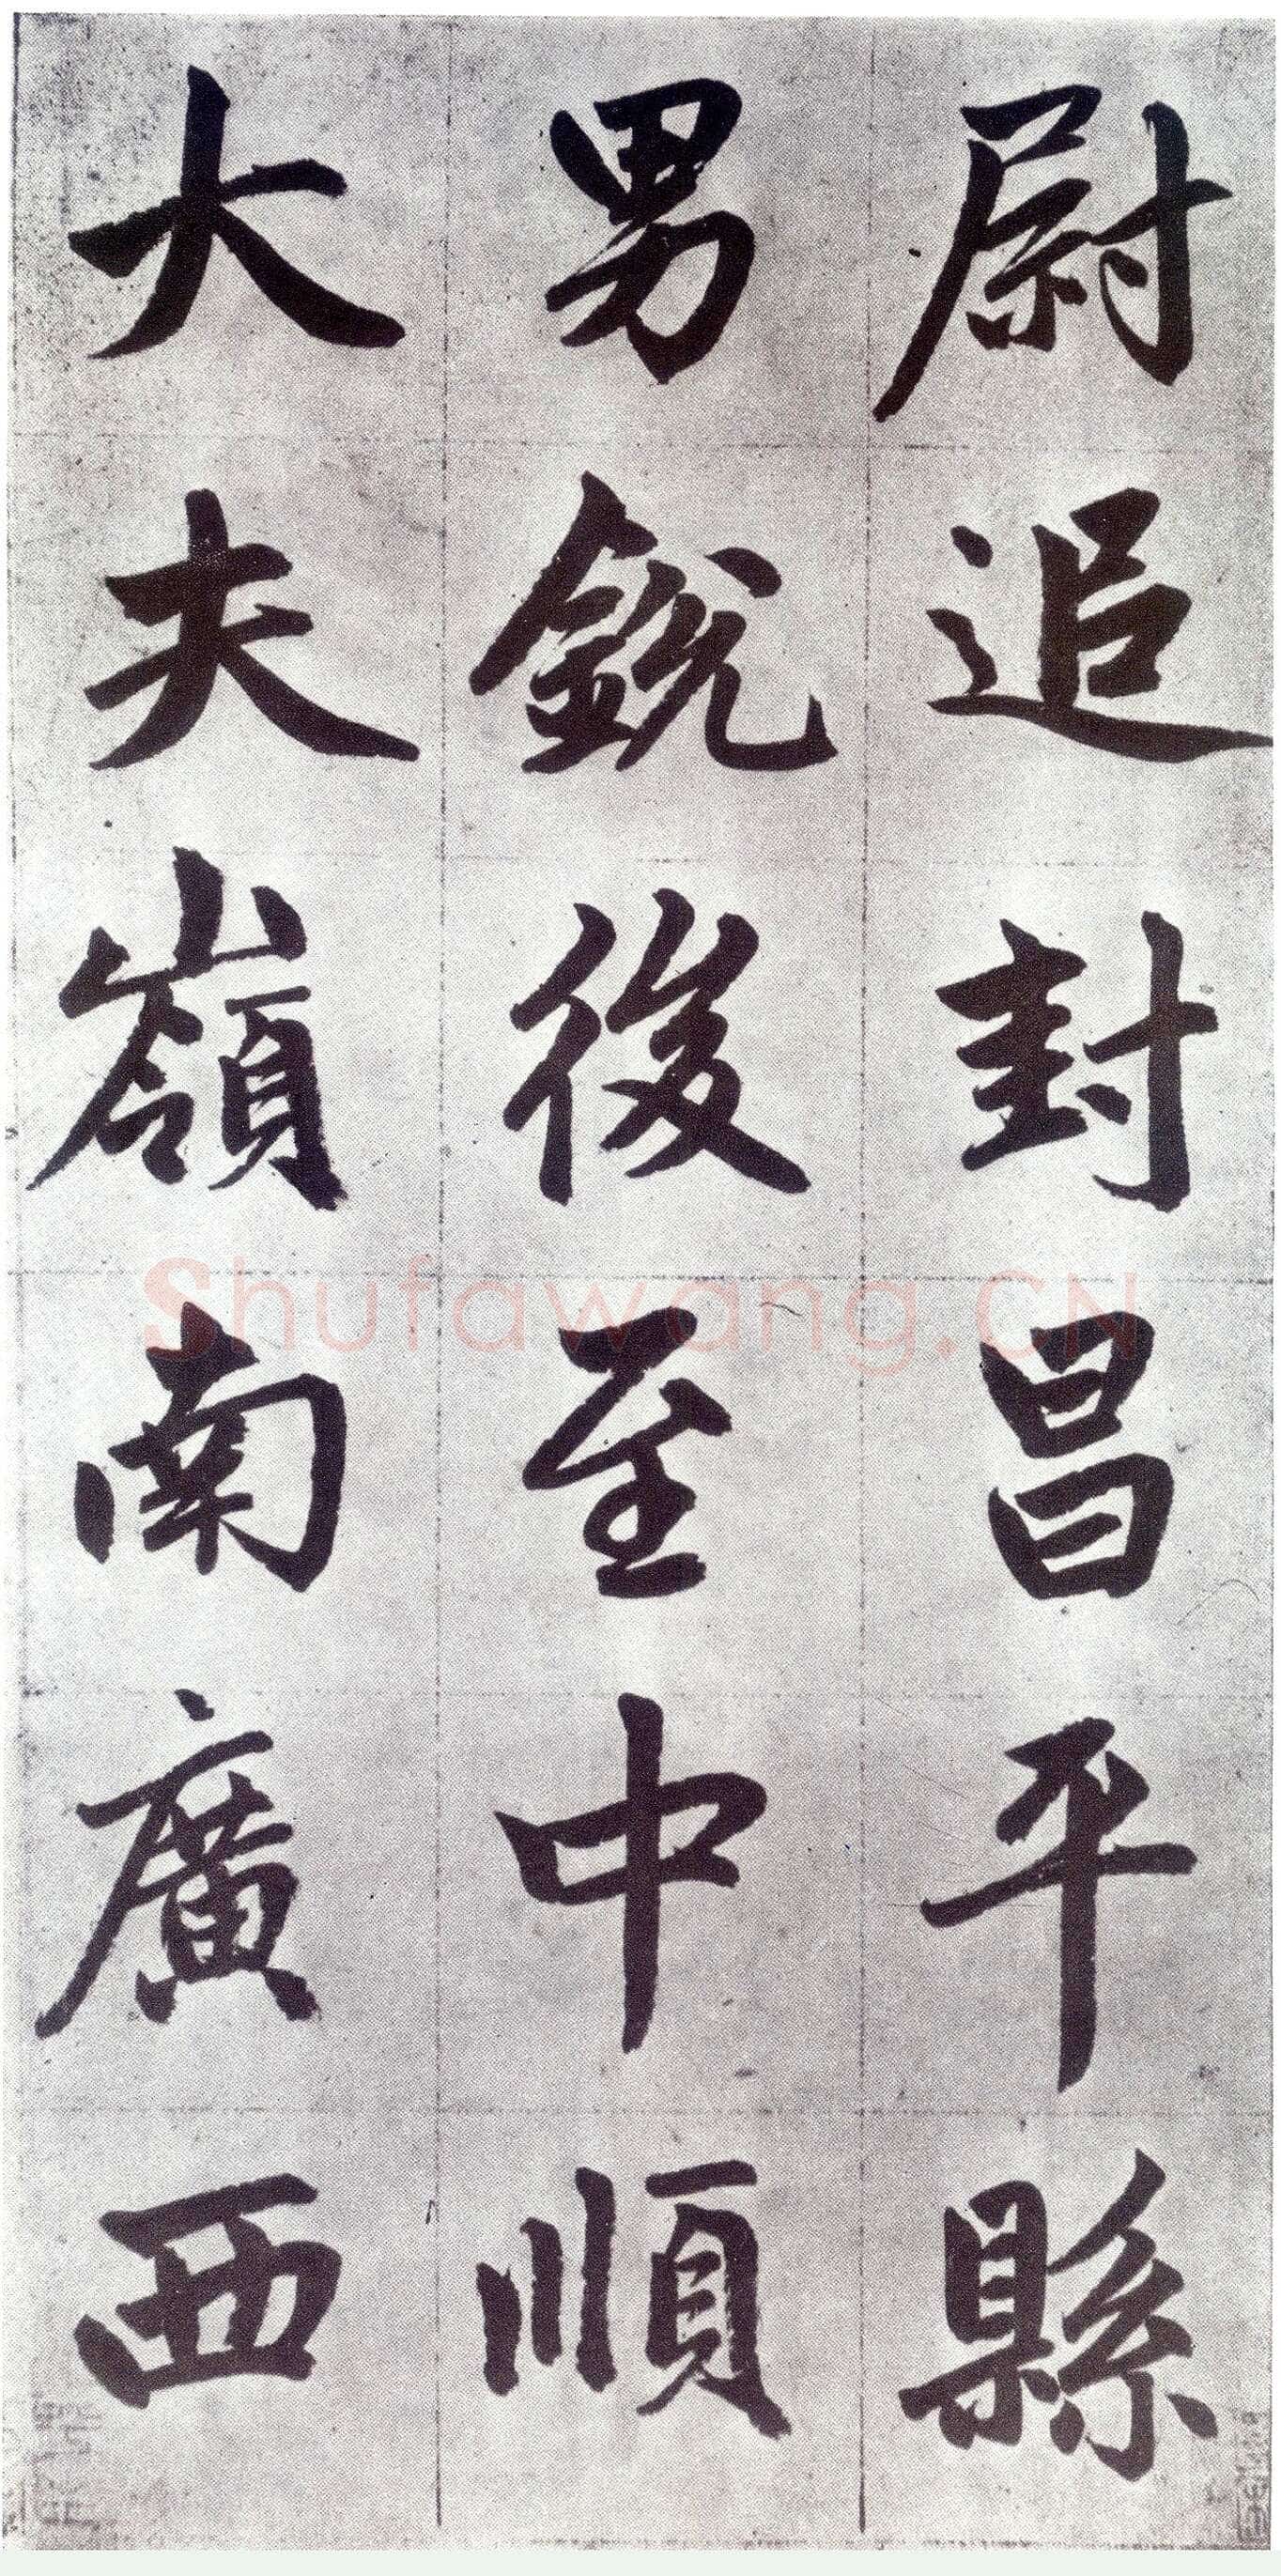 尉追封昌平縣
男銳後至中順
大夫嶺南廣西
Shufawang.CN